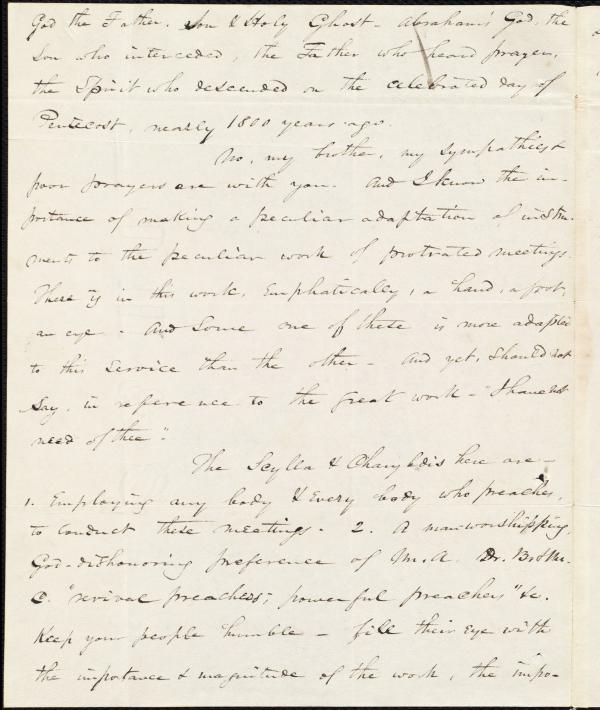 God the Father, Son & Holy Ghost - Abraham's God, the
Son who interceded, the Father who heard prayer,
the Spirit who descended on the celebrated day of
Pentecost, nearly 1800 years ago.
No, my brother, my sympathies &
poor prayers are with you. And I know the im-
portance of making a peculiar adaptation of instru-
ments to the peculiar work of protrated meetings.
There is in this work, Emphatically, a hand, a foot,
an eye - And Some one of these is more adapted
to this Service than the other - And yet, should not
Say, in reference to the great work - "I have not
need of thee".
The Scylla & Charybdis here are -
1. Employing any body & Every body who preaches,
to conduct these meetings. 2. A manworshipping,
God-dishonoring preference of Mr. A. Dr. B or Mr.
C. "revival preachers", powerful preachers" &c.
Keep your people humble - fill their Eye with
the importance & magnitude of the work, the impo-